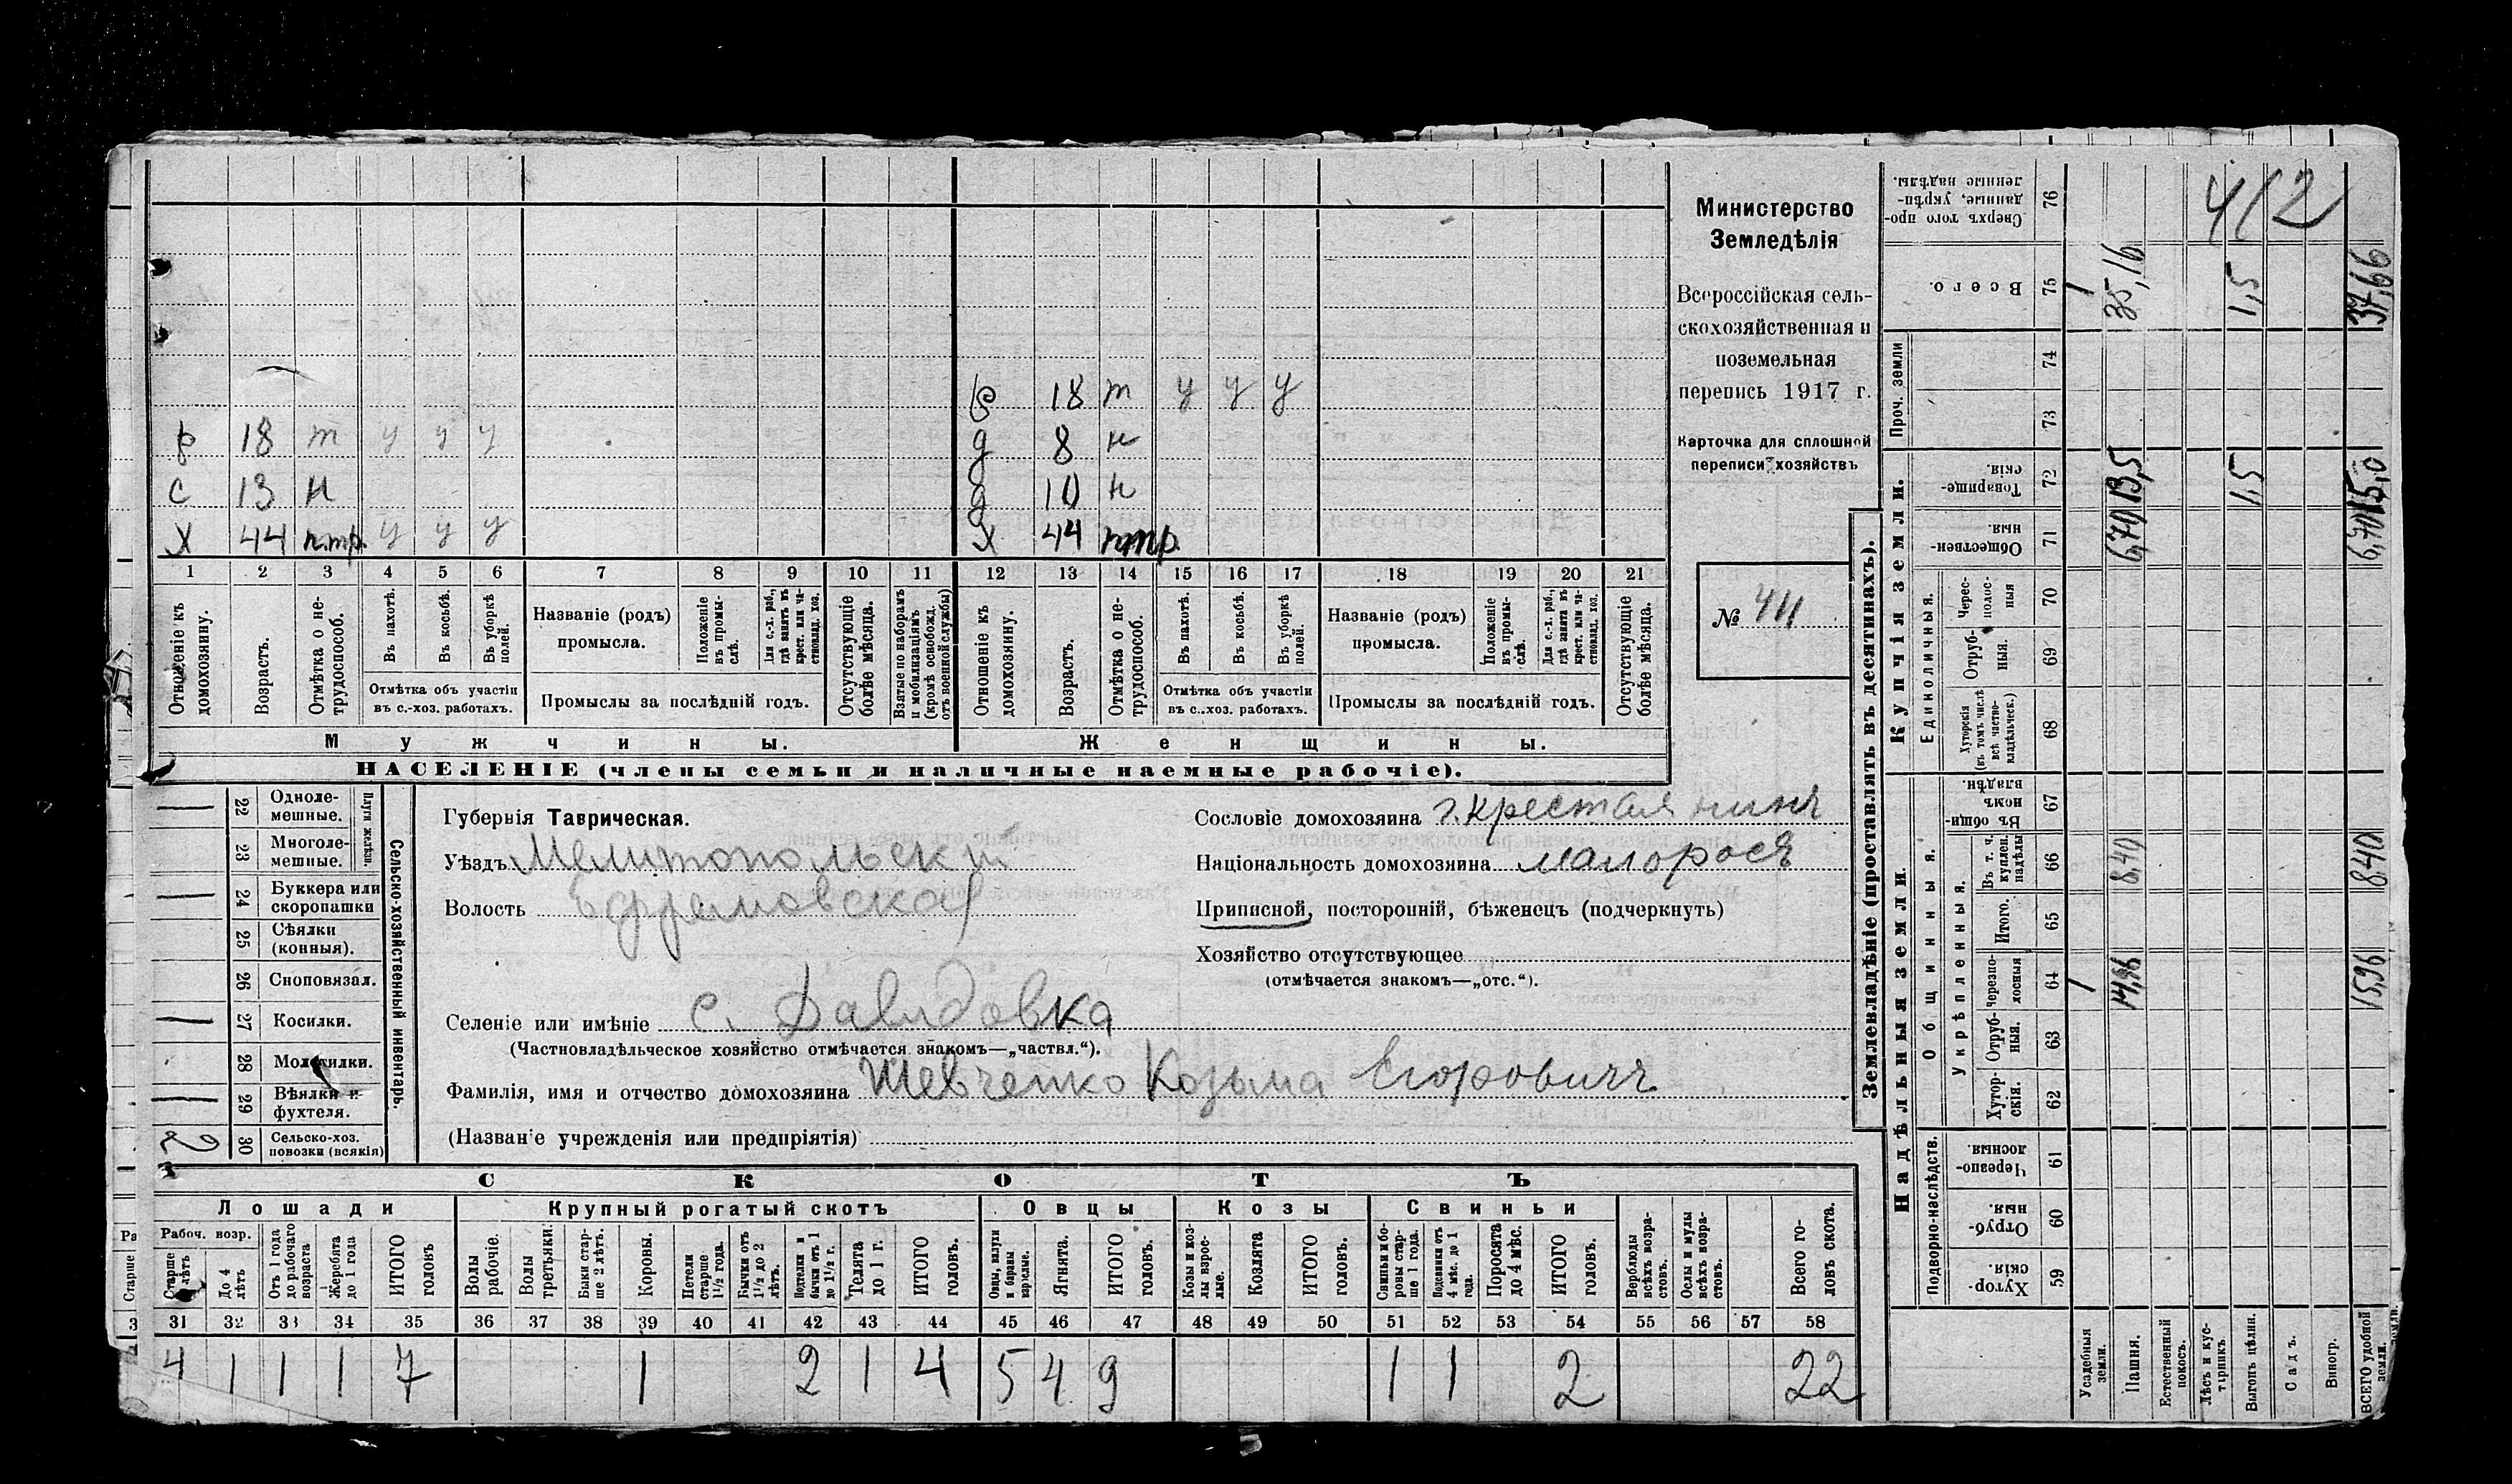 Министерство
Земледѣлія
Всероссійская сель-
скохозяйственная и
поземельная
перепись 1917 г.
Карточка для сплошной
переписи хозяйствъ
№ 411
412
р 18 т у у у
р 18 т у у у
д 8 н
с 13 н
д 10 н
х 44 п.тр. у у у
х 44 п.тр.
1 2 3 4 5 6 7 8 9 10 11 12 13 14 15 16 17 18 19 20 21
Отношеніе къ домохозяину.
Возрастъ.
Отмѣтка о не-трудоспособ.
Въ пахотѣ.
Въ косьбѣ.
Въ уборкѣ полей.
Отмѣтка объ участіи
въ с.-хоз. работахъ.
Названіе (родъ)
промысла.
Положеніе въ промы-слѣ.
Для с.-х. раб., гдѣ занятъ въ крест. или ча-стновлад. хоз.
Промыслы за послѣдній годъ.
Отсутствующіе болѣе мѣсяца.
Взятые по наборамъ и мобилизаціямъ (кромѣ освобожд. отъ военной службы)
Отношеніе къ домохозяину.
Возрастъ.
Отмѣтка о не-трудоспособ.
Въ пахотѣ.
Въ косьбѣ.
Въ уборкѣ полей.
Отмѣтка объ участіи
въ с..хоз. работахъ.
Названіе (родъ)
промысла.
Положеніе въ промы-слѣ.
Для с.-х. раб., гдѣ занятъ въ крест. или ча-стновлад. хоз.
Промыслы за послѣдній годъ.
Отсутствующіе болѣе мѣсяца.
Мужчины.
Женщины.
НАСЕЛЕНІЕ (члены семьи и наличные наемные рабочіе).
22 Одноле-мешные.
23 Многоле-мешные.
Плуги желѣзн.
24 Буккера или скоропашки
25 Сѣялки (конныя).
26 Сноповязал.
27 Косилки.
28 Молотилки.
29 Вѣялки и фухтеля.
2 30 Сельско-хоз. повозки (всякія)
Сельско-хозяйственный инвентарь.
Губернія Таврическая.
Уѣздъ Мелитопольскій
Волость Ефремовская
Селеніе или имѣніе с. Давидовка
(Частновладѣльческое хозяйство отмѣчается знакомъ—„частвл.“).
Фамилія, имя и отчество домохозяина Шевченко Козьма Егоровичъ
(Названіе учрежденія или предпріятія)
Сословіе домохозяина г. крестьянинъ
Національность домохозяина малоросъ
Приписной, посторонній, бѣженецъ (подчеркнуть)
Хозяйство отсутствующее
(отмѣчается знакомъ—„отс.“).
СКОТЪ
Лошади
Крупный рогатый скотъ
Овцы
Козы
Свиньи
Рабоч. возр.
Старше 4 лѣтъ
До 4 лѣтъ
Отъ 1 года до рабочаго возраста
Жеребята до 1 года
ИТОГО головъ
Волы рабочіе.
Волы третьяки.
Быки стар-ше 2 лѣтъ.
Коровы.
Нетели старше 1½ года.
Бычки отъ 1½ до 2 лѣтъ.
Подтелки и бычки отъ 1 до 1½ г.
Телята до 1 г.
ИТОГО головъ.
Овцы, валухи и бараны взрослые.
Ягнята.
ИТОГО головъ.
Козы и коз-лы взрос-лые.
Козлята
ИТОГО головъ.
Свиньи и бо-ровы стар-ше 1 года.
Подсвинки отъ 4 мѣс. до 1 года.
Поросята до 4 мѣс.
ИТОГО головъ.
Верблюды всѣхъ возра-стовъ.
Ослы и мулы всѣхъ возра-стовъ.
Всего го-ловъ скота.
31 32 33 34 35 36 37 38 39 40 41 42 43 44 45 46 47 48 49 50 51 52 53 54 55 56 57 58
4 1 1 1 7 1 2 1 4 5 4 9 1 1 2 22
Землевладѣніе (проставлять въ десятинахъ).
Надѣльныя земли.
Купчія земли.
Проч. земли
Подворно-наслѣдств.
Общинныя.
Укрѣпленныя.
Единоличныя.
Хутор-скія. 59
Отруб-ныя. 60
Черезпо-лосныя 61
Хутор-скія. 62
Отруб-ныя. 63
Черезпо-лосныя 64
Итого. 65
Въ т. ч. куплен. надѣлы 66
Въ общи-номъ владѣн. 67
Хуторскія (въ томъ числѣ всѣ частно-владѣльческ.) 68
Отруб-ныя. 69
Черес-полос-ныя 70
Обществен-ныя. 71
Товарище-скія. 72
73
74
Всего. 75
Сверхъ того про-данные, укрѣп-ленные надѣлы. 76
Усадебныя земли. 1 1
Пашня. 14,96 8,40 6,70 13,5 35,16
Естественный покосъ.
Лѣсъ и кус-тарникъ.
Выгонъ цѣлин. 1,5 1,5
Садъ.
Виногр.
ВСЕГО удобной земли. 15,96 8,40 6,70 15,0 37,66